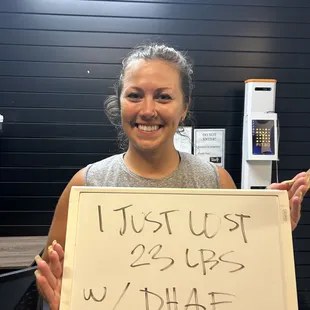 I JUST LOST
23 LBS
W/ DHAF